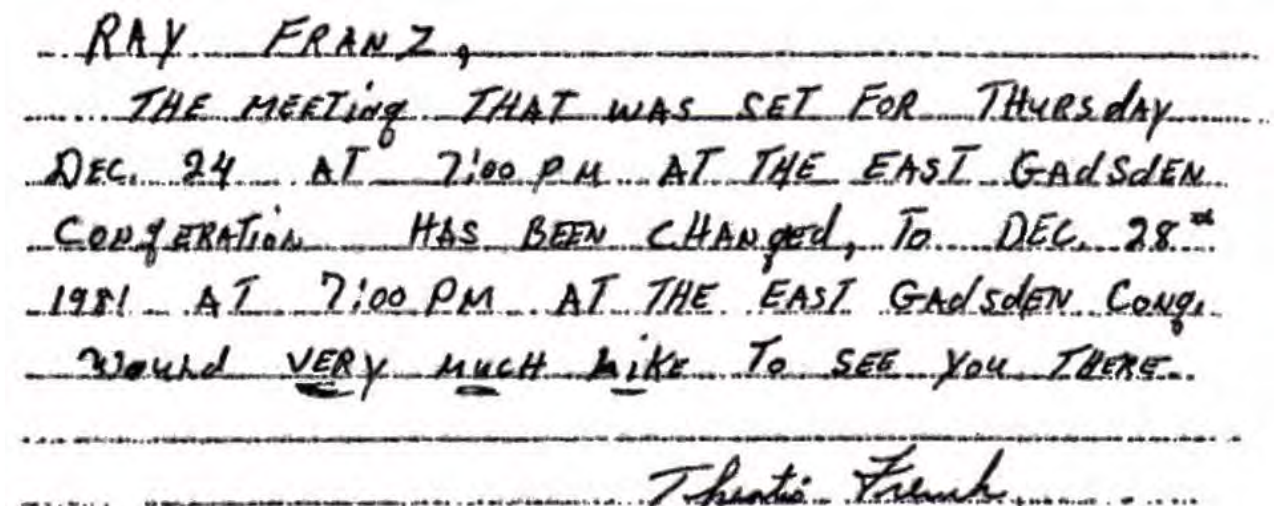 RAY FRANZ,
THE MEETing THAT WAS SET FOR THURSdAY
DEC. 24 AT 7:00 PM AT THE EAST GAdSdEN
CONgERATION HAS BEEN CHANged, To DEC. 28th
1981 AT 7:00 PM AT THE EAST GAdSdEN CONg.
Would VERY MucH LiKE To SEE You THERE.
Theotis French